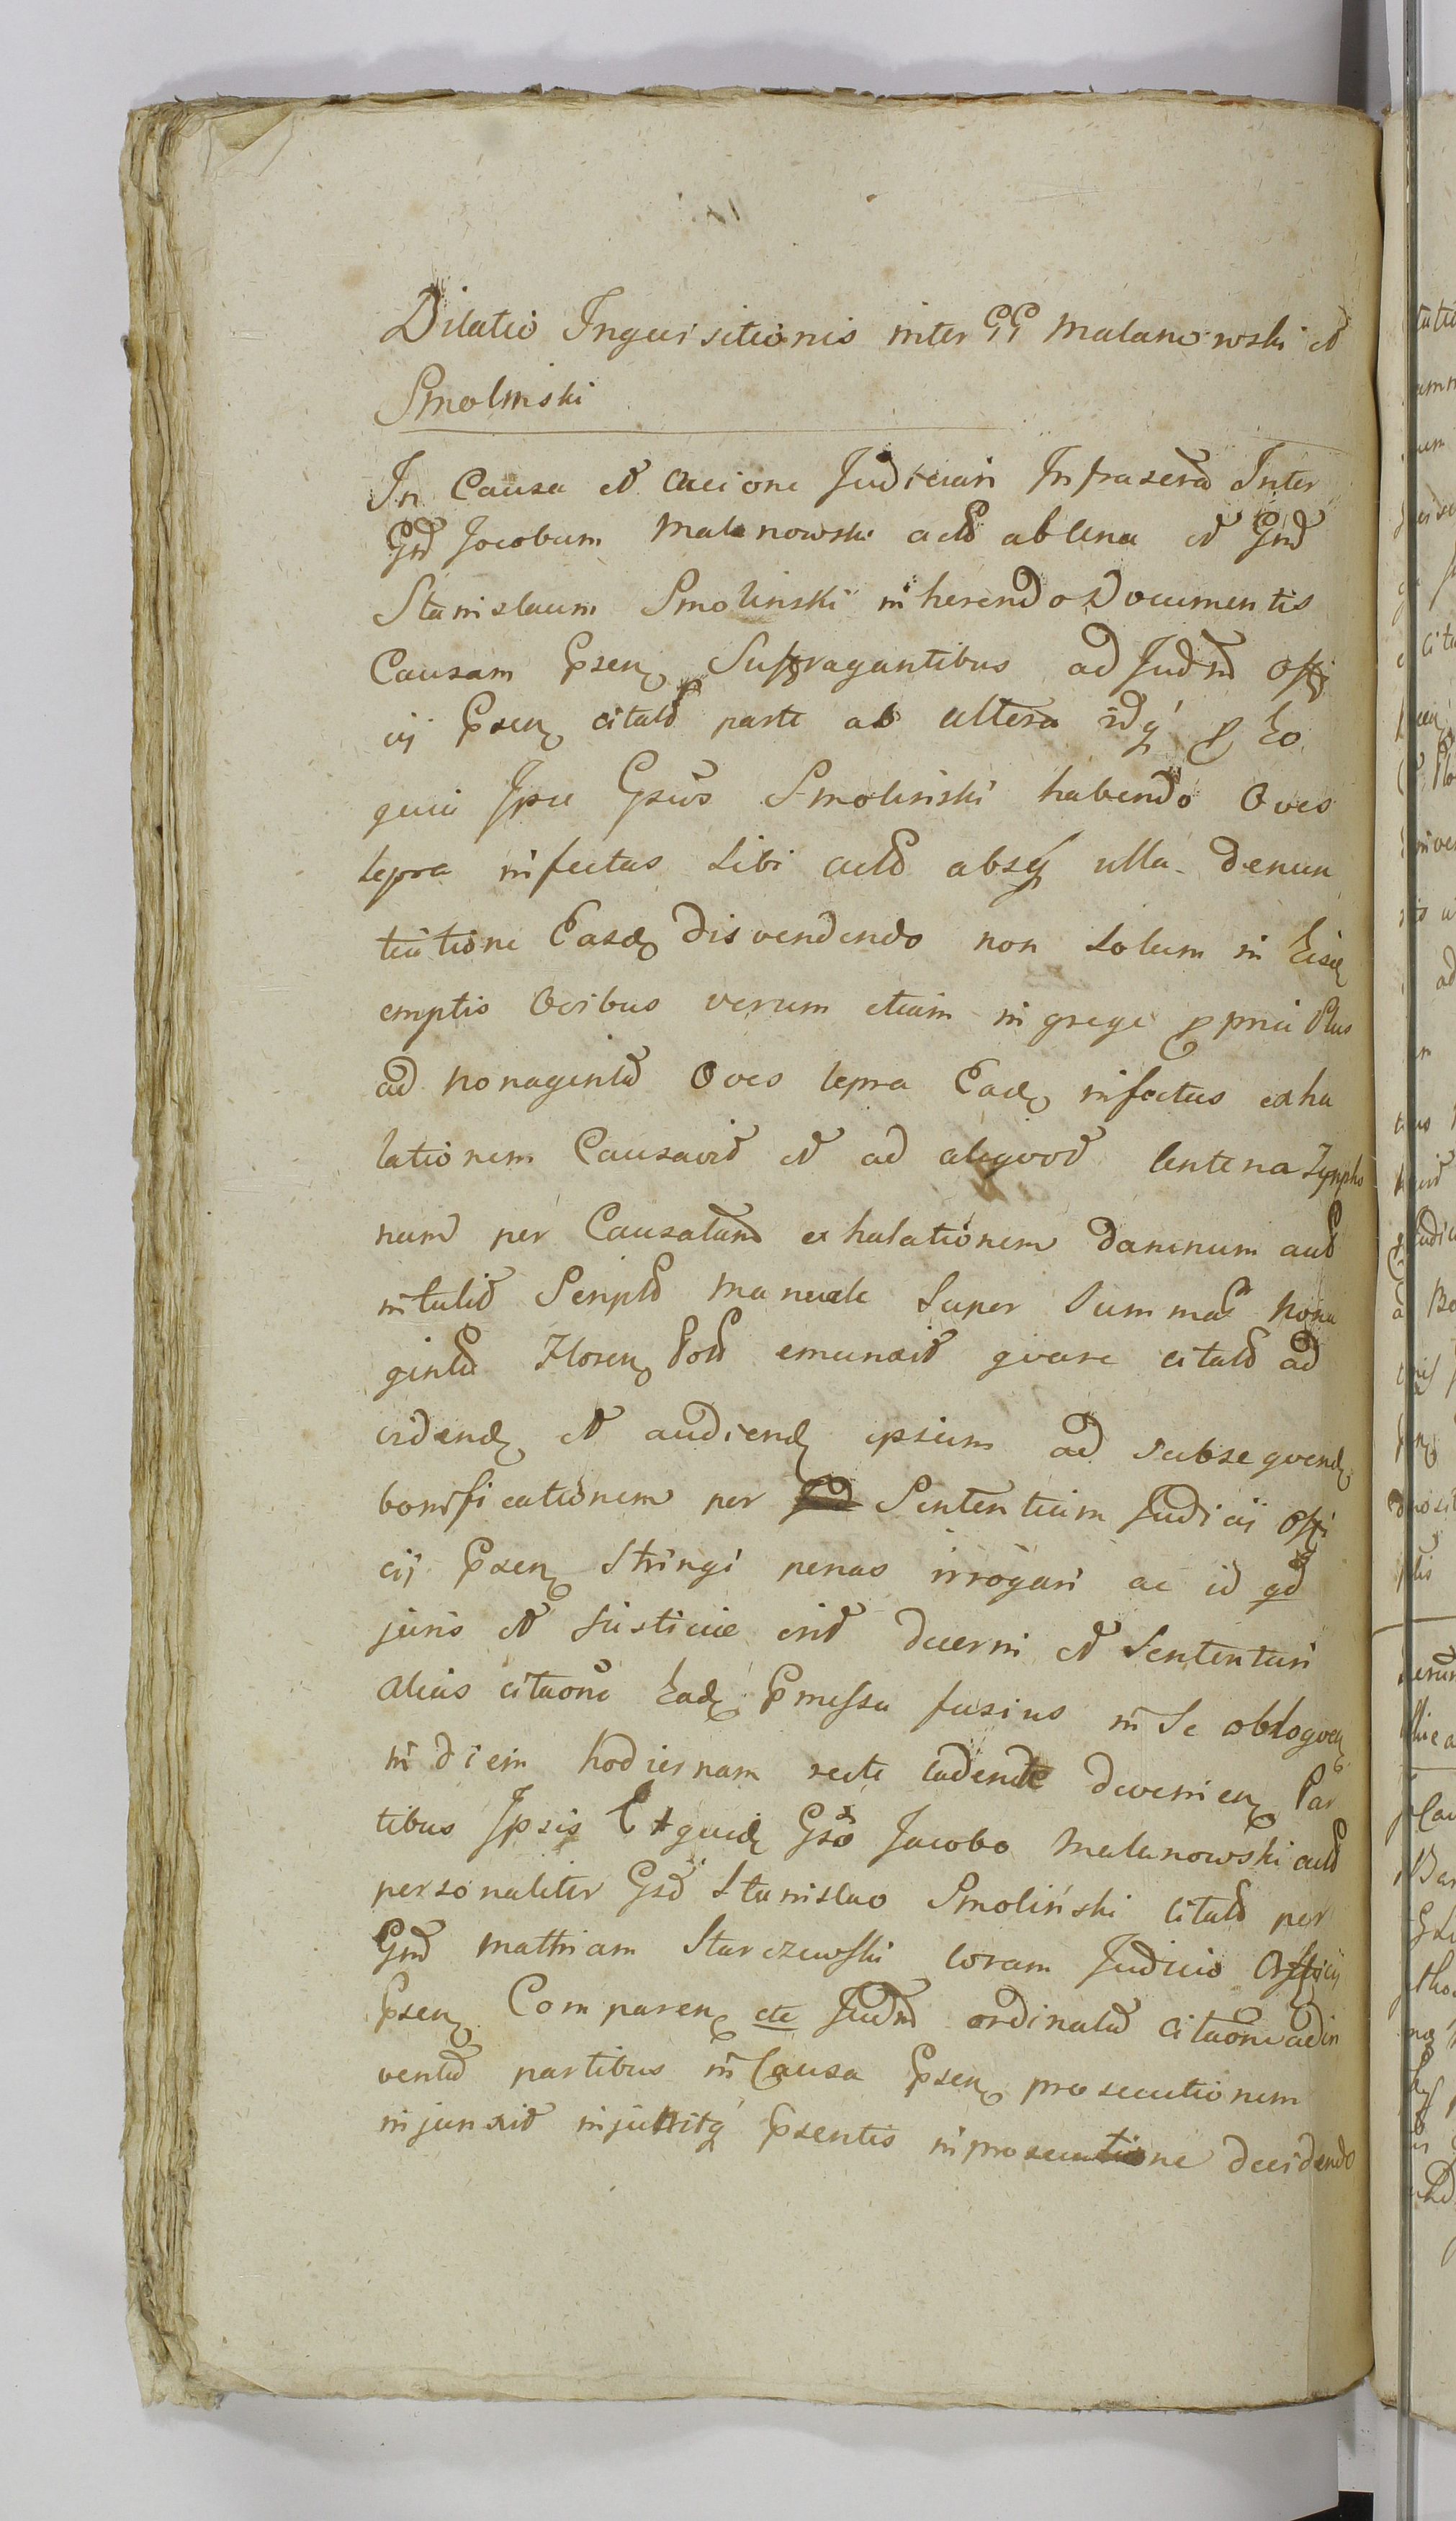 Dilatio Inquisitionis inter GG Malanowski et
Smolinski
In Causa et Accione Judiciari Infrascrã Inter
Gnd Jocobum Malanowski actð ab una et Gnd
Stanislaum Smolinski inherendo Documentis
Causam Psen Suffragantibus ad Judm Offi
cij Psen citatð parte ab altera idq p Eo
quia Ipse Gsus Smolinski habendo Oves
lepra infectas Sibi actð absq ulla denun
tiatione Easd disvendendo non Solum in Eisd
emptis Ovibus verum etiam in grege pprii Plus
ad nonagintã Oves lepra Eadq infectas exha
lationem Causavit et ad aliquod Centena Tynpho
num per Causatam exhalationem damnum actð
intulit Scriptð Manuale Super Summas nona
gintã Floren Polð emunxit quare citatð ad
vidend et audiend ipsum ad Subsequend
bonificationem per Sententiam Judicij Offi
cij Psen Stringi penas irrogari ac id qd
juris et Justicie erit decerni et Sententiari
Alias citaone Eadq Pmissa fusius in Se obloquen
in diem hodiernam recte cadende devenien Par
tibus Ipsis Et quid Gso Jacobo Malanowski actð
personaliter Gsd Stanislao Smoliński Citatð per
Gnd Mathiam Starczewski Coram Judicio Officij
Psen Comparen etc Judm ordinatã citaone adin
ventã partibus in Causa Psen prosecutionem
injunxit injunxitq Psentis in prosecutione decidendo